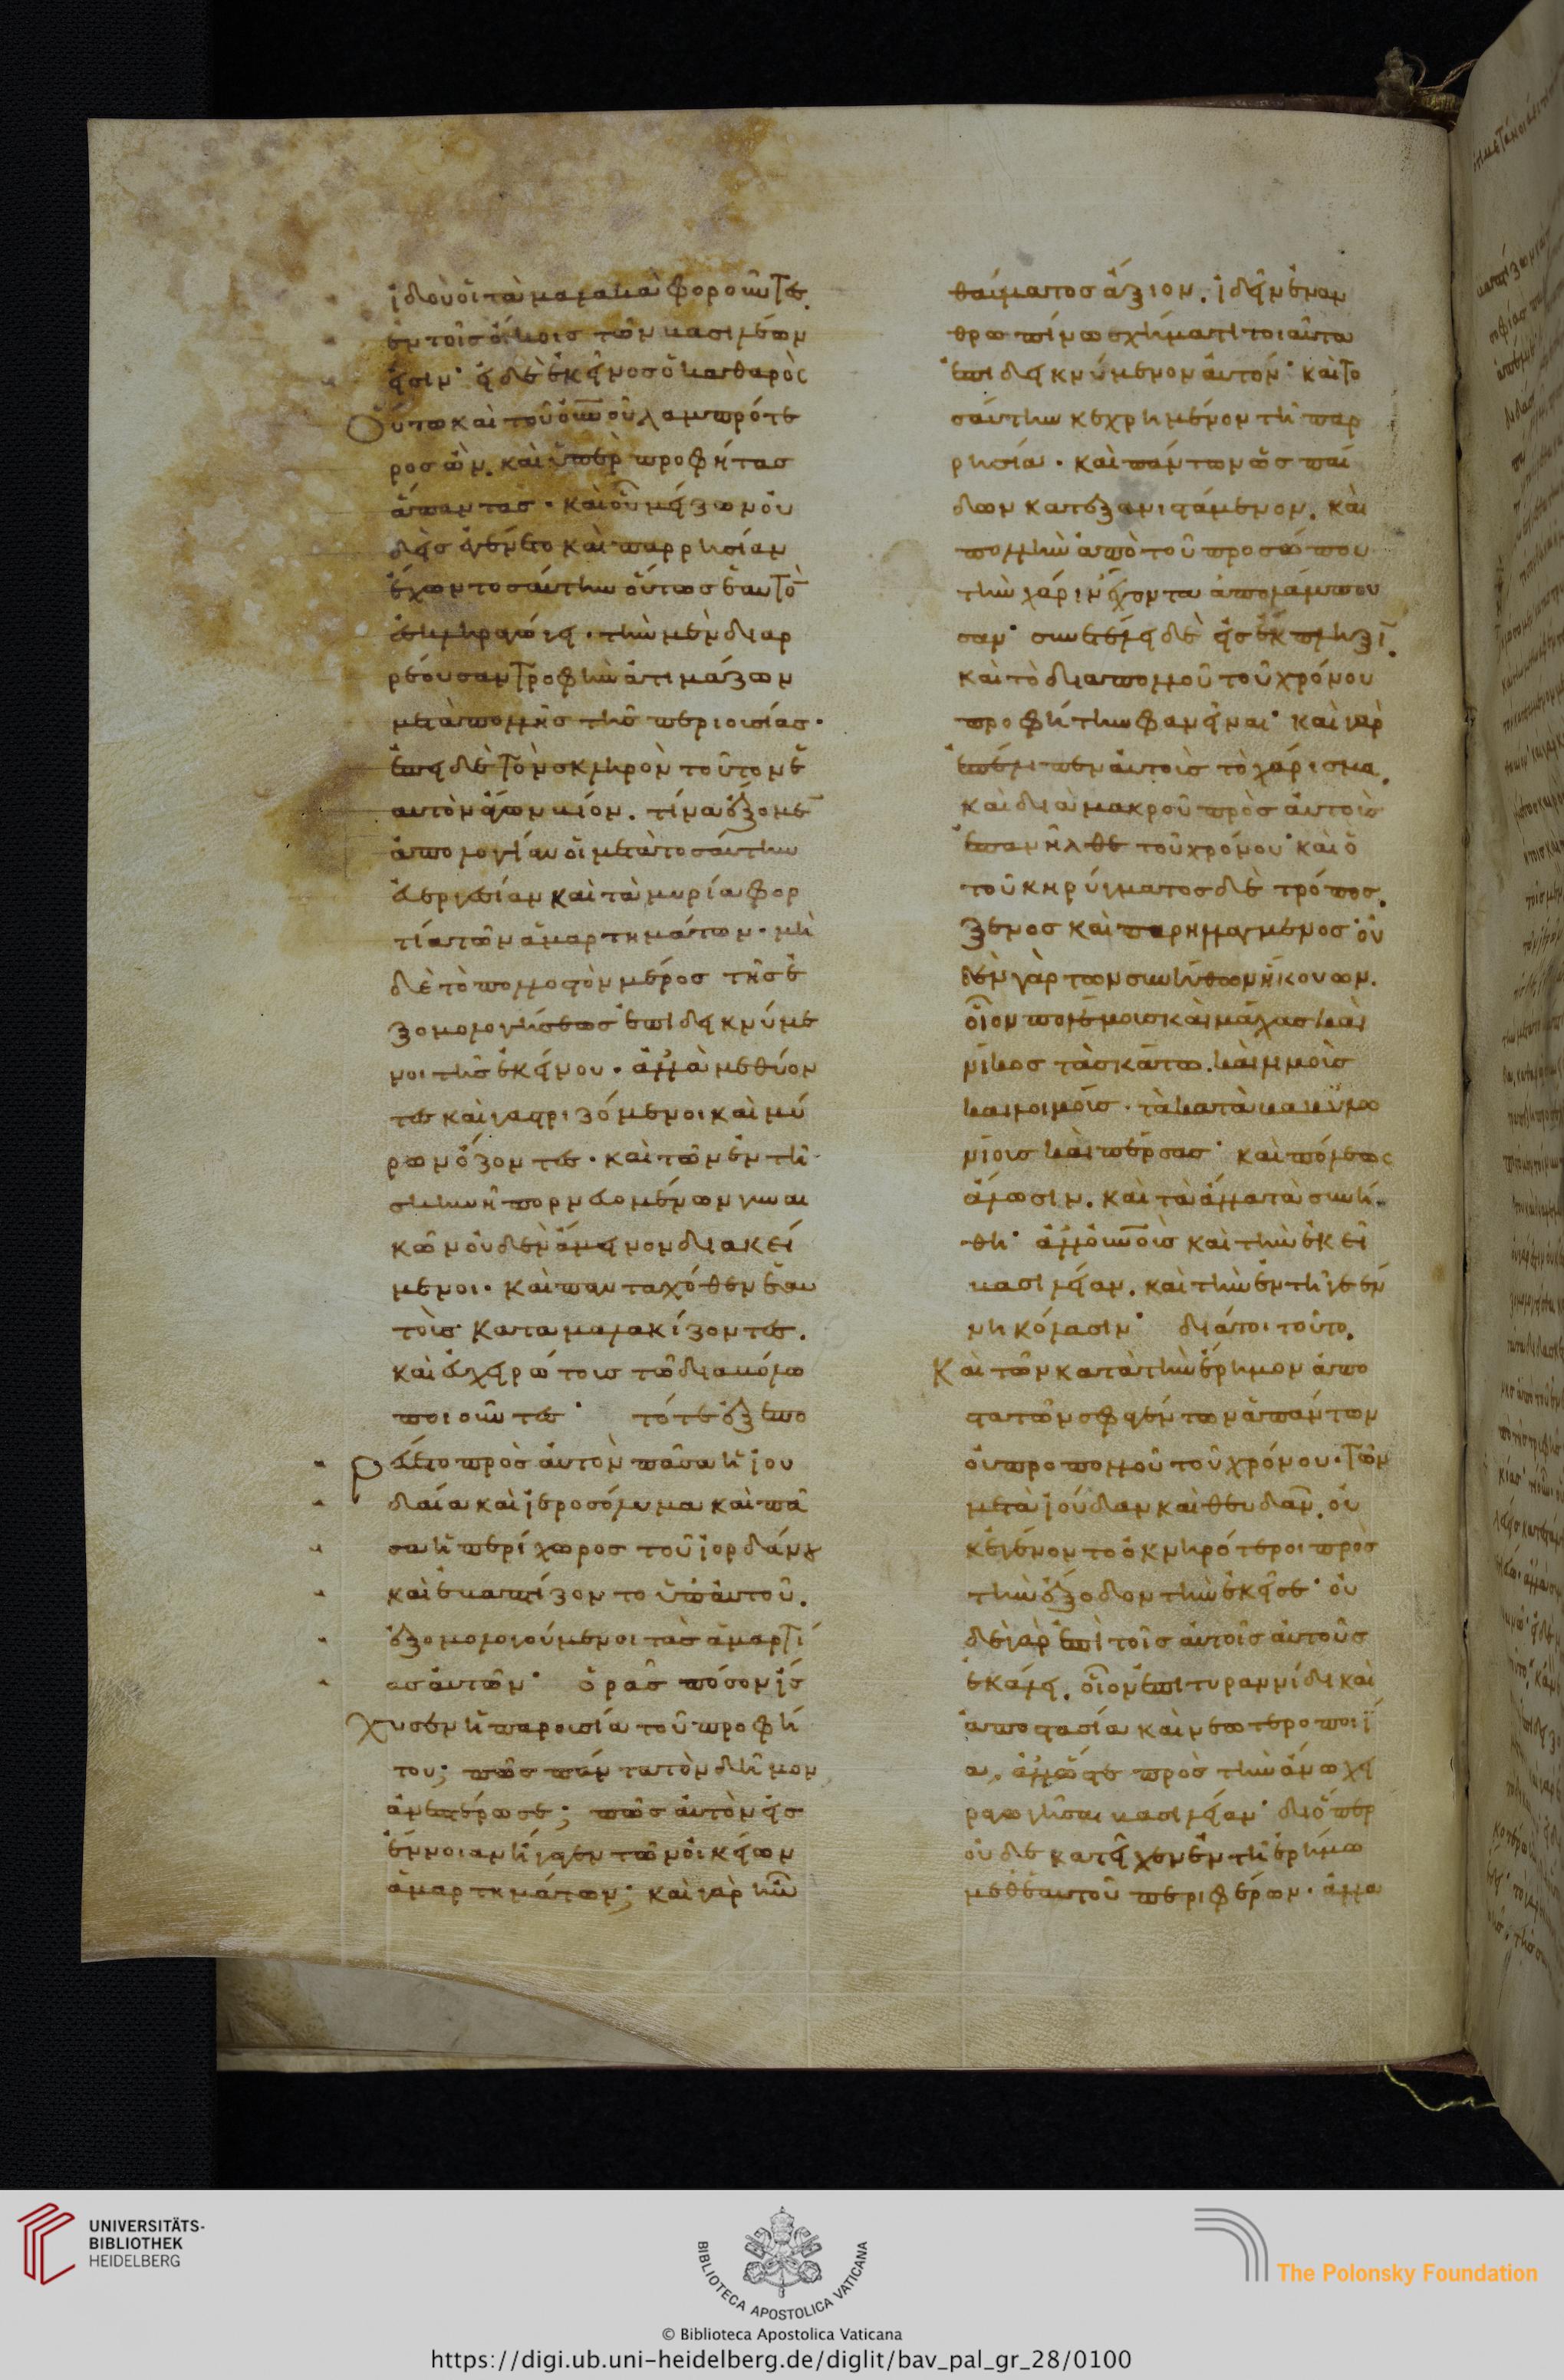 ἰδοὺ οἱ τὰ μαλακὰ φοροῦντες
ἐν τοῖς οἴκοις τῶν βασιλέων
εἰσιν· εἰ δὲ ἐκεῖνος ὁ καθαρὸς
οὕτω καὶ τοῦ οὐνοῦ λαμπρότε
ρος ὢν. καὶ ὑπὲρ προφήτας
ἅπαντας. καὶ οὗ μείζων οὐ
δεὶς ἐγένετο καὶ παρρησίαν
ἔχων τοσαύτην οὕτως ἑαυτὸ̅
ἐσκληραγώγει. τὴν μὲν διαρ
ρέουσαν τροφὴν ἀτιμάζων
μετὰ πολλῆς τῆς περιουσίας.
ἐπεὶ δὲ τὸν σκληρὸν τοῦτον ἑ
αυτὸν ἄγων βίον. τίνα ἕξομε̅
ἀπολογίαν οἱ μετὰ τοσαύτην
εὐεργεσίαν καὶ τὰ μυρία φορ
τία τῶν ἁμαρτημάτων. μὴ
δὲ τὸ πολλοστὸν μέρος τῆς ἐ
ξομολογήσεως ἐπιδεικνύμε
νοι τῆς ἐκείνου. ἀλλὰ μεθύον
τες καὶ γαστριζόμενοι καὶ μύ
ρων ὄζοντες. καὶ τῶν ἐν τῇ
σκηνῇ πορνευομένων γυναι
κῶν οὐδὲν ἄμεινον διακεί
μενοι. καὶ πανταχόθεν ἑαυ
τοὺς καταμαλακίζοντες.
καὶ εὐχειρώτους τῶ διαβόλω
ποιοῦντες· τότε ἐξεπο
ρεύετο πρὸς αὐτὸν πᾶσα ἡ ἰου
δαία καὶ ἱεροσόλυμα καὶ πᾶ
σα ἡ περίχωρος τοῦ ἰορδάνου
καὶ ἐβαπτίζοντο ὑπ' αὐτοῦ.
ἐξομολογούμενοι τὰς ἁμαρτί
ας αὐτῶν· ὁρᾶς πόσον ἴσ
χυσεν ἡ παρουσία τοῦ προφή
του; πῶς πάντα τὸν δῆμον
ἀνεπτέρωσε; πῶς αὐτὸν εἰς
ἔννοιαν ἤγαγεν τῶν οἰκείων
ἁμαρτημάτων; καὶ γὰρ ἦν
θαύματος ἄξιον. ἰδεῖν ἐν ἀν
θρωπίνω σχήματι τοιαῦτα
ἐπιδεικνύμενον αὐτόν· καὶ το
σαύτη κεχρημένον τῇ παρ
ρησία. καὶ πάντων ὡς παί
δων κατεξανιστάμενον. καὶ
πολλὴν ἀπὸ τοῦ προσώπου
τὴν χάριν ἔχοντα ἀπολάμπου
σαν· συνετέλει δὲ εἰς ἔκπληξι̅.
καὶ τὸ διὰ πολλοῦ τοῦ χρόνου
προφήτην φανῆναι· καὶ γὰρ
ἐπέλιπεν αὐτοὺς τὸ χάρισμα.
καὶ διὰ μακροῦ πρὸς αὐτοὺς
ἐπανῆλθε τοῦ χρόνου· καὶ ὁ
τοῦ κηρύγματος δὲ τρόπος.
ξένος καὶ παρηλλαγμένος· οὐ
δὲν γὰρ τῶν συνήθων ἤκουον.
οἷον πολέμους καὶ μάχας καὶ
νίκας τὰς κάτω. καὶ λιμοὺς
καὶ λοιμούς. τὰ κατὰ βαβυλω
νίους καὶ πέρσας· καὶ πόλεως
ἅλωσιν. καὶ τὰ ἄλλα τὰ συνή
θη· ἀλλ' οὐνοὺς καὶ τὴν ἐκεῖ
βασιλείαν. καὶ τὴν ἐν τῇ γεέν
νη κόλασιν· διάτοι τοῦτο.
Καὶ τῶν κατὰ τὴν ἔρημον ἀπο
στατῶν σφαγέντων ἁπάντων
οὐ πρὸ πολλοῦ τοῦ χρόνου. τῶν
μετὰ ἰούδαν καὶ θευδᾶν. οὐ
κ ἐγένοντο ὀκνηρότεροι πρὸς
τὴν ἔξοδον τὴν ἐκεῖσε· οὐ
δὲ γὰρ ἐπὶ τοῖς αὐτοῖς αὐτοὺς
ἐκάλει. οἷον ἐπὶ τυραννίδι καὶ
ἀποστασία καὶ νεωτεροποιΐ
α. ἀλλ' ὥστε πρὸς τὴν ἄνω χει
ραγωγῆσαι βασιλείαν· διόπερ
οὐδὲ κατεῖχεν ἐν τῇ ἐρήμω
μεθ' ἑαυτοῦ περιφέρων. ἀλλα
UNIVERSITÄTS-
BIBLIOTHEK
HEIDELBERG
BIBLIOTECA APOSTOLICA VATICANA
The Polonsky Foundation
© Biblioteca Apostolica Vaticana
https://digi.ub.uni-heidelberg.de/diglit/bav_pal_gr_28/0100